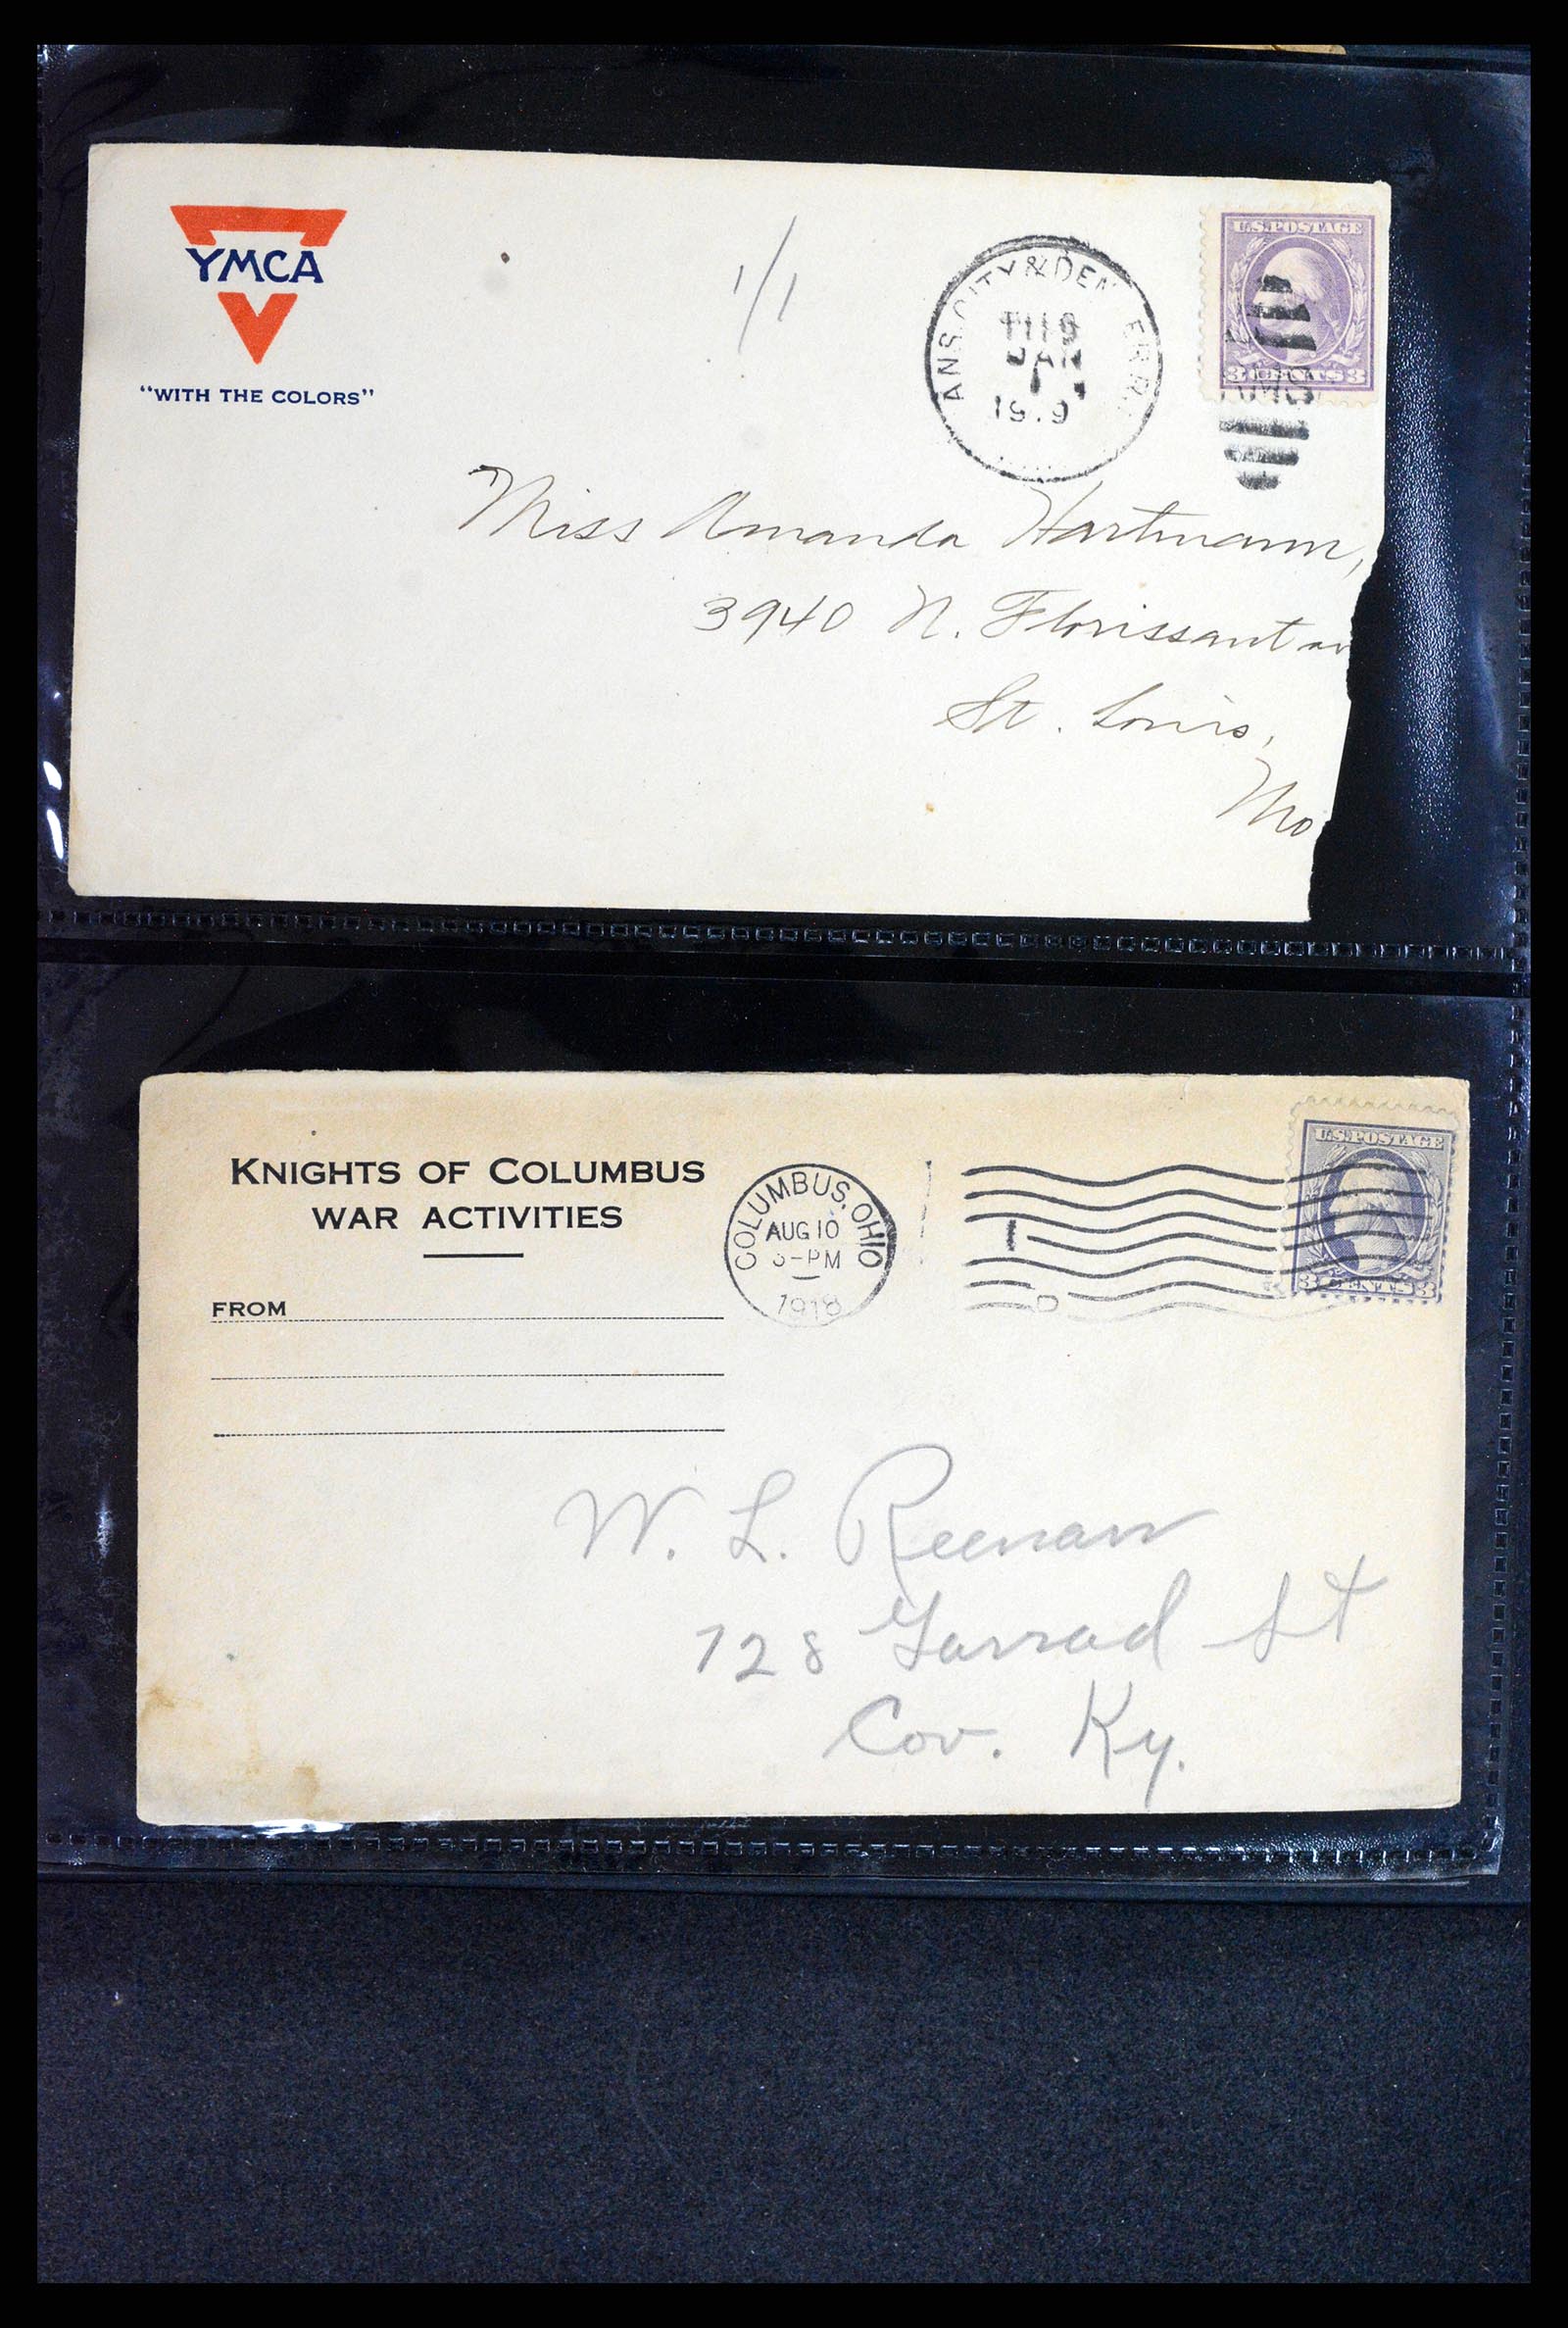 YMCA
"WITH THE COLORS"
1/1
ANS. CITY & DEN ER R.R.
JAN
19 9
RMS
U.S. POSTAGE
3 CENTS 3
Miss Amanda Hartmann,
3940 N. Florissant av
St. Louis,
Mo
KNIGHTS OF COLUMBUS
WAR ACTIVITIES
FROM
COLUMBUS, OHIO
AUG 10
-PM
1918
U.S. POSTAGE
3 CENTS 3
W. L. Reenan
728 Garrad St
Cov. Ky.